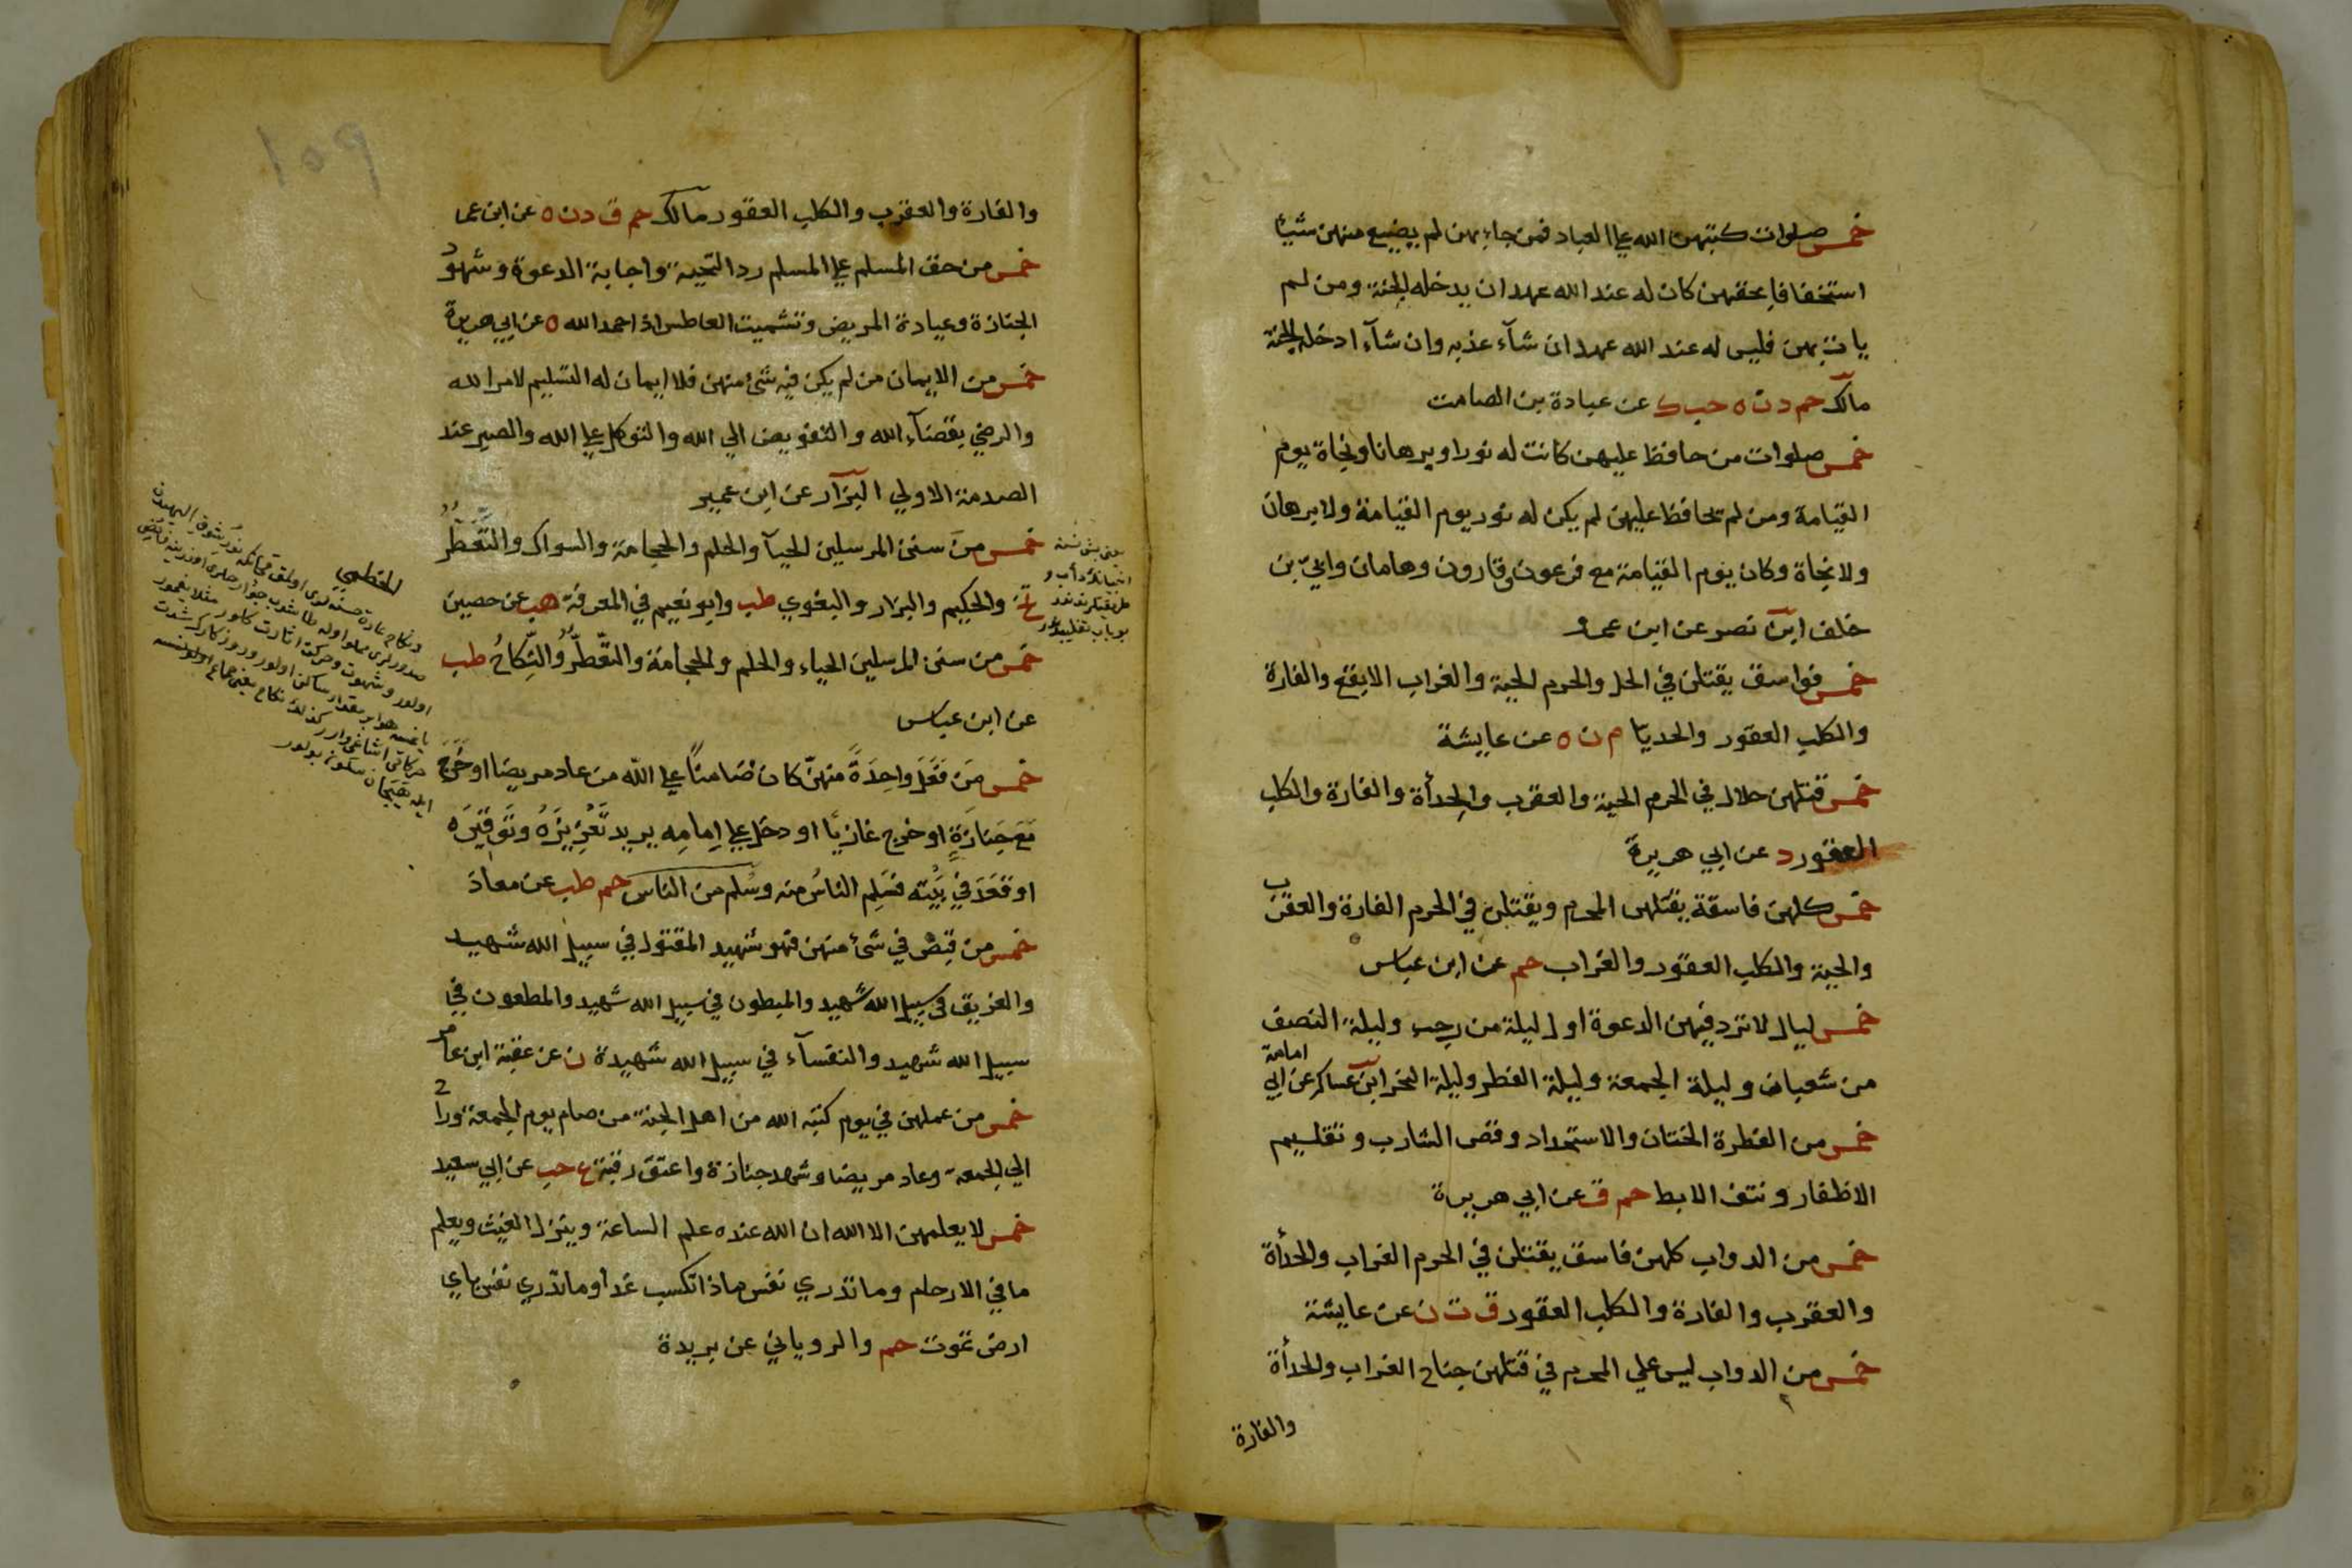 خمس صلوات كتبهن الله علي العباد فمن جاء بهن لم يضيع منهن شيئا
استخفافا بحقهن كان له عند الله عهد ان يدخله الجنة ومن لم
يات بهن فليس له عند الله عهد ان شآء عذبه وان شآء ادخله الجنة
مالك حم د ن ه حب ك عن عبادة بن الصامت
خمس صلوات من حافظ عليهن كانت له نورا وبرهانا ونجاة يوم
القيامة ومن لم يحافظ عليهن لم يكن له نور يوم القيامة ولا برهان
ولا نجاة وكان يوم القيامة مع فرعون وقارون وهامان وابيّ بن
خلف ابن نصر عن ابن عمرو
خمس فواسق يقتلن في الحل والحرم الحية والغراب الابقع والفارة
والكلب العقور والحديا م ن ه عن عايشة
خمس قتلهن حلال في الحرم الحية والعقرب والحدأة والفارة والكلب
العقور د عن ابي هريرة
خمس كلهن فاسقة يقتلهن المحرم ويقتلن في الحرم الفارة والعقرب
والحية والكلب العقور والغراب حم عن ابن عباس
خمس ليال لا ترد فيهن الدعوة اول ليلة من رجب وليلة النصف
من شعبان وليلة الجمعة وليلة الفطر وليلة النحر ابن عساكر عن ابي امامة
خمس من الفطرة الختان والاستحداد وقص الشارب وتقليم
الاظفار ونتف الابط حم ق عن ابي هريرة
خمس من الدواب كلهن فاسق يقتلن في الحرم الغراب والحدأة
والعقرب والفارة والكلب العقور ق ت ن عن عايشة
خمس من الدواب ليس علي المحرم في قتلهن جناح الغراب والحدأة
والفارة
١٥٩
والفارة والعقرب والكلب العقور مالك حم ق د ن ه عن ابن عما
خمس من حق المسلم علي المسلم رد التحية واجابة الدعوة وشهود
الجنازة وعيادة المريض وتشميت العاطس اذا حمد الله ه عن ابي هريرة
خمس من الايمان من لم يكن فيه شئ منهن فلا ايمان له التسليم لامر الله
والرضي بقضآء الله والتفويض الي الله والتوكل علي الله والصبر عند
الصدمة الاولي البزآر عن ابن عمير
خمس من سنن المرسلين الحيآ والحلم والحجامة والسواك والتَّعَطُّرُ
تخ والحكيم والبزار والبغوي طب وابو نعيم في المعرفة هب عن حصين
خمس من سنن المرسلين الحياء والحلم والحجامة والتعّطرُّ والنِّكَاحُ طب
عن ابن عباس
خمس مَن فَعَلَ واحِدَةً منهنّ كان ضَامناً علي اللّه من عاد مريضا او خَرَجَ
مَعَ جَنازَةٍ او خرج غازيًا او دخل علي اِمامِه يريد تَعْزِيزَهُ وتَوقِيَره
او قَعَدَ في بَيْته فسَلِم الناسُ منه وسَلم من الناس حم طب عن معاذ
خمس من قبض في شئ منهن فهو شهيد المقتول في سبيل الله شهيد
والغريق في سبيل الله شهيد والمبطون في سبيل الله شهيد والمطعون في
سبيل الله شهيد والنفسآء في سبيل الله شهيدة ن عن عقبة ابن عامر
خمس من عملهن في يوم كتبه الله من اهل الجنة من صام يوم الجمعة وراح
الي الجمعة وعاد مريضا وشهد جنازة واعتق رقبة ع حب عن ابي سعيد
خمس لا يعلمهن الا الله ان الله عنده علم الساعة وينزل الغيث ويعلم
ما في الارحام وما تدري نفس ماذا تكسب غدا وما تدري نفس باي
ارض تموت حم والروياني عن بريدة